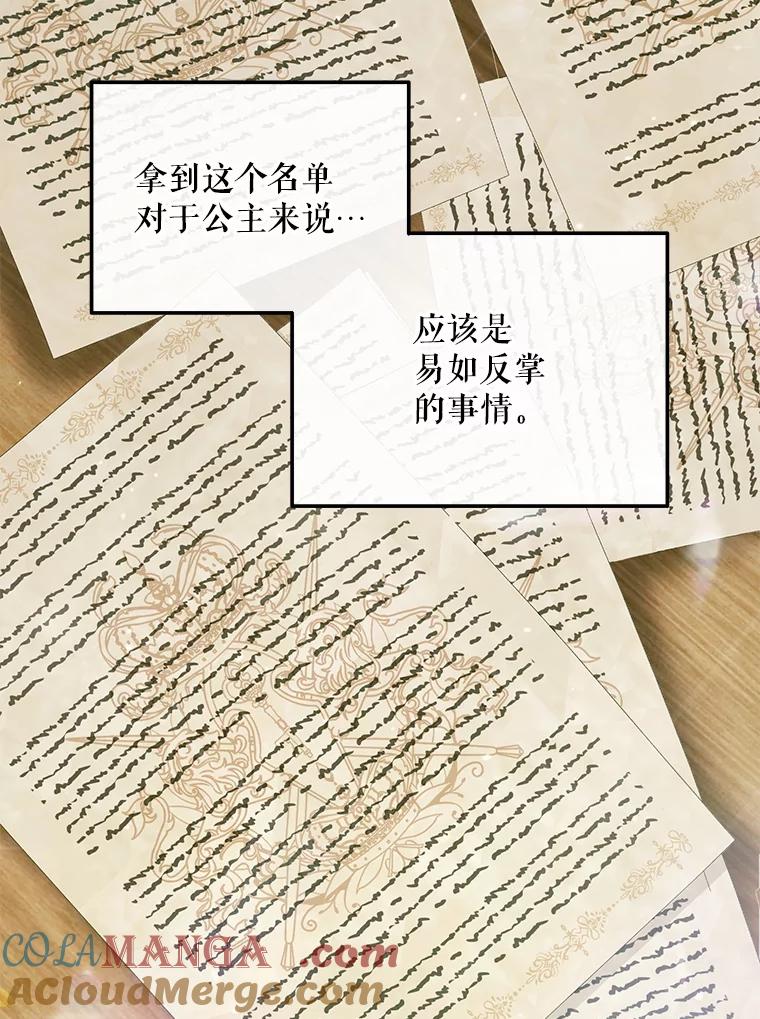 拿到这个名单
对于公主来说…
应该是
易如反掌
的事情。
COLAMANGA.com
AcloudMerge.com